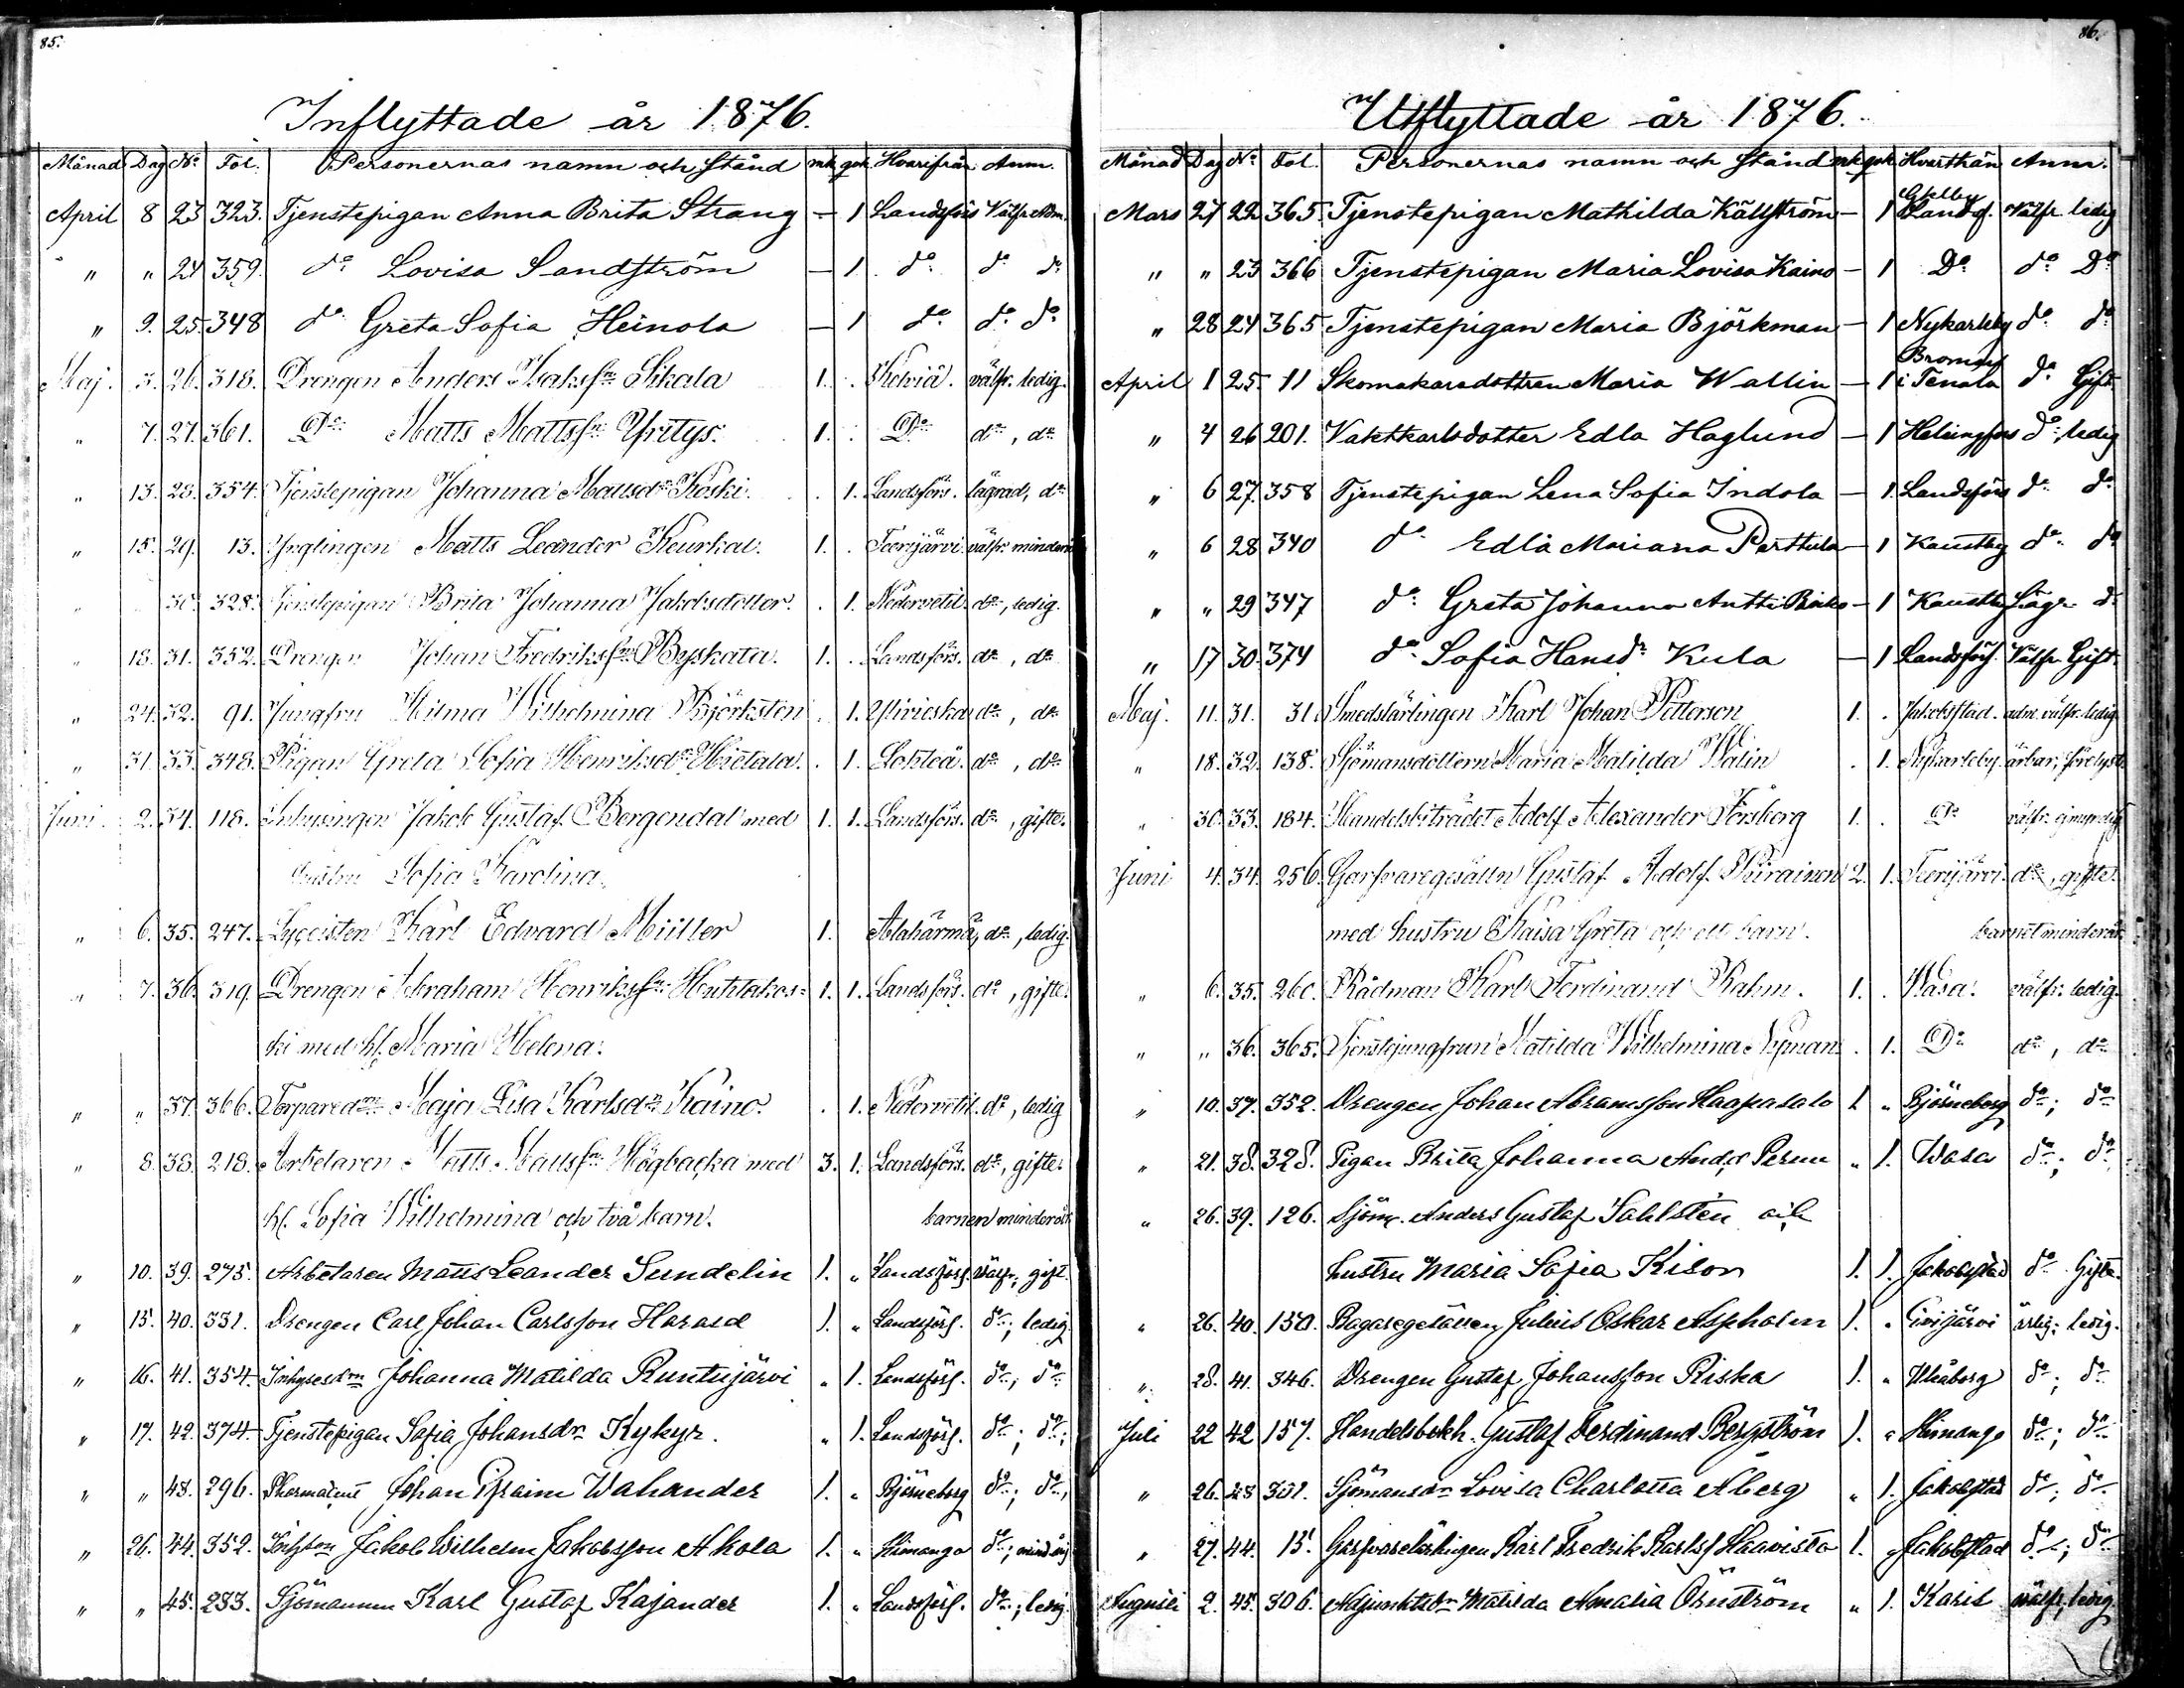 85.
Inflyttade år 1876.
Månad Dag No Fol. Personernas namn och stånd mk qvk Hvarifrån Anm.
April 8 23 323. Tjenstepigan Anna Brita Strang — 1 Landsförs Välfr
" " 24 359. do Lovisa Sandström — 1 do do do
" 9. 25. 348 do Greta Sofia Heinola — 1 do do do
Maj. 3. 26. 318. Drengen Anders Sikala 1. . Kelviå. välfr. ledig.
" 7. 27. 361. Do Matts Mattsson Yritys. 1. . Do do, do
" 13. 28. 354. Tjenstepigan Johanna Mattsdr Koski. . 1. Landsförs. lägrad, do
" 15. 29. 13. Ynglingen Matts Leander Keurkal. 1. . Teerijärvi. välfr. minderå
" 30. 328. Tjenstepigan Brita Johanna Jakobsdotter. . 1. Nedervetil. do, ledig.
" 18. 31. 352. Drengen Johan Fredriksson Byskata. 1. . Landsförs. do, do
" 24. 32. 91. Jungfru Hilma Wilhelmina Björkstén . 1. Ylivieska do, do
" 31. 33. 348. Pigan Greta Sofia Henriksdr Hietala. . 1. Lohteå. do, do
Juni. 2. 34. 118. Inhysingen Jakob Gustaf Bergendal med 1. 1. Landsförs. do, gifte.
hustru Sofia Karolina.
" 6. 35. 247. Lyceisten Karl Edvard Müller 1. Alahärmä, do, ledig.
" 7. 36. 319. Drengen Abraham Henriksson Huhtakos= 1. 1. Landsförs. do, gifte.
ki med h. Maria Helena.
" " 37. 366. Torparedn Maja Lisa Karlsdr Kaino. . 1. Nedervetil. do, ledig
" 8. 38. 218. Arbetaren Matts Mattsson Högbacka med 3. 1. Landsförs. do, gifte.
h. Sofia Wilhelmina och två barn. barnen minderår
" 10. 39. 275. Arbetaren Matts Leander Sundelin 1. " Landsförs. välfr; gift.
" 15. 40. 331. Drengen Carl Johan Carlsson Harald 1. " Landsförs. do; ledig.
" 16. 41. 354. Inhysesdn Johanna Matilda Runtujärvi " 1. Landsförs. do; do
" 17. 42. 374 Tjenstepigan Sofia Johansdn Kykyr. " 1. Landsförs. do; do;
" " 43. 296. Johan Efraim Wahander 1. " Björneborg do; do;
" 26. 44. 352. Jakob Wilhelm Jakobsson Ahola 1. " Himango do; mindårig
" " 45. 283. Sjömannen Karl Gustaf Kajander 1. " Landsförs. do; ledig.
86.
Utflyttade år 1876.
Månad Dag No Fol. Personernas namn och stånd mk qvk Hvarthän Anm.
Mars 27 22 365. Tjenstepigan Mathilda Källström — 1 Landsf. Välfr. ledig
" " 23 366 Tjenstepigan Maria Lovisa Kaino — 1 Do do Do
" 28 24 365 Tjenstepigan Maria Björkman — 1 Nykarleby do do
April 1 25 11 Skomakaredottren Maria Wallin — 1 Bromarf i Tenala do Gift
" 4 26 201. Vaktkarlsdotter Edla Haglund — 1 Helsingfors do ledig
" 6 27. 358 Tjenstepigan Lena Sofia Indola — 1. Landsförs do do
" 6 28 340 do Edla Mariana Perttula — 1 Kaustby do do
" " 29 347 do Greta Johanna Antti — 1 Kaustby Lägr. do
" 17 30. 374 do Sofia Hansdr Kula — 1 Landsförs. Välfr. Gift.
Maj. 11. 31. 31. Smedslärlingen Karl Johan Pettersen 1. . Jakobstad. adm. välfr. ledig
" 18. 32. 138. Sjömansdottern Maria Matilda Walin . 1. Nykarleby. ärbar,
" 30. 33. 184. Handelsbiträdet Adolf Alexander Forsberg 1. . Do välfr.
Juni 4. 34. 256. Garfvaregesälln Gustaf Adolf Piirainen 2. 1. Teerijärvi. do, gifte.
med hustru Kaisa Greta och ett barn. barnet minderår
" 6. 35. 260. Rådman Karl Ferdinand Rahm. 1. . Wasa. välfr. ledig.
" " 36. 365. Tjenstejungfrun Matilda Wilhelmina Nyman. . 1. Do do, do
" 10. 37. 352. Drengen Johan Abramsson Haapasalo 1 " Björneborg do; do
" 21. 38. 328. Pigan Brita Johanna Andsd Permu " 1. Wasa do; do
" 26. 39. 126. Sjöm. Anders Gustaf Sahlstén och
hustru Maria Sofia Kilon 1. 1. Jakobstad do Gifta.
" 26. 40. 150. Bagaregesällen Julius Oskar Aspholm 1. " Evijärvi ärlig; ledig.
" 28. 41. 346. Drengen Gustaf Johansson Riska 1. " Uleåborg do; do
Juli 22 42 157. Handelsbokh. Gustaf Ferdinand Bergström 1. " Himango do; do
" 26. 43 301. Sjömansdn Lovisa Charlotta Åberg " 1. Jakobstad do; do
" 27. 44. 15. Garfvarelärlingen Karl Fredrik Karlsf Haavisto 1. " Jakobstad do; do
Augusti 2. 45. 306. Adjunktsdn Matilda Amalia Örnström " 1. Karis välfr, ledig.